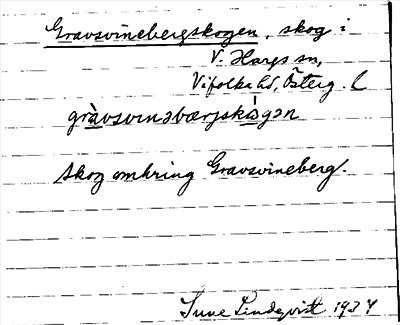 Gravsvinebergskogen, skog i
V. Hargs sn,
Vifolka hd, Österg. l
gràvsvinəbærjskògən
skog omkring Gravsvineberg.
Sune Lindqvist 1934